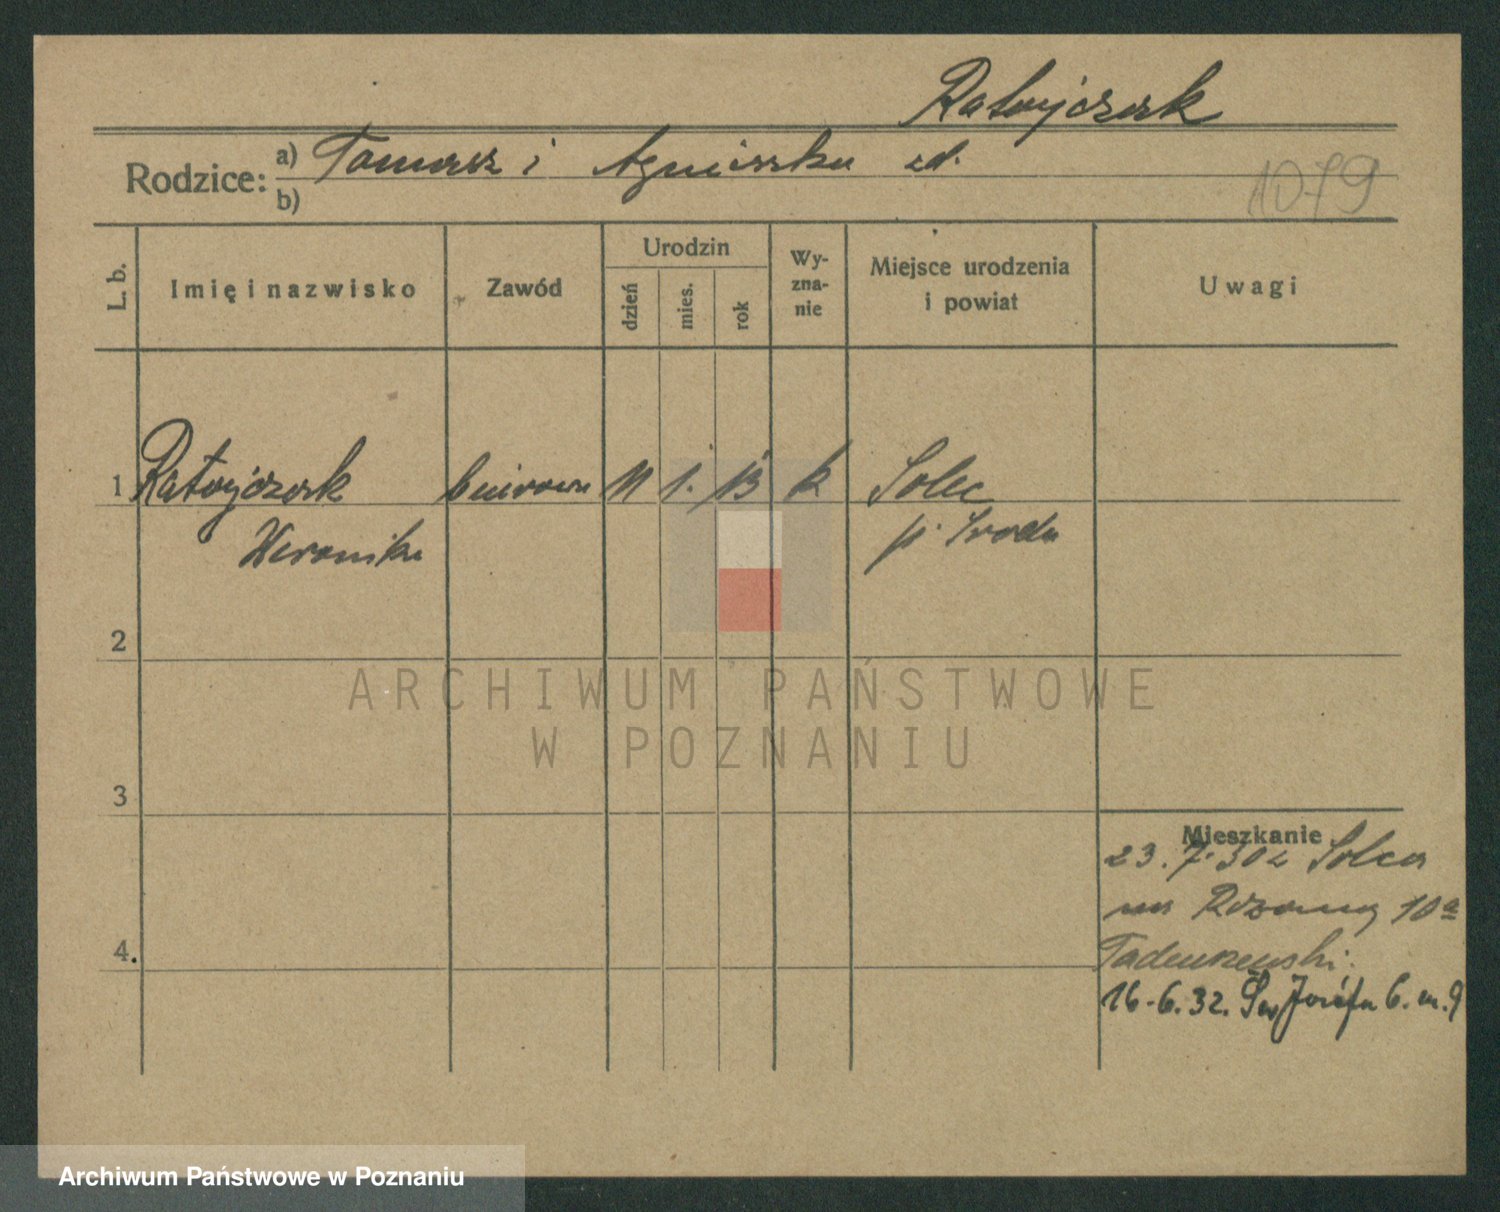 Ratajczak
Rodzice: a) Tomasz i Agnieszka zd.
b)
1079
L. b.
Imię i nazwisko
Zawód
Urodzin
dzień
mies.
rok
Wy-
zna-
nie
Miejsce urodzenia
i powiat
Uwagi
1 Ratajczak biurowa 11 1. 13 k Solec
Weronika p. Środa
2
3
4.
Mieszkanie
23. 7. 30 z Solca
na Różaną 10a
Tadeuszewski.
16.6.32. Św Józefa 6. m. 9
ARCHIWUM PAŃSTWOWE
W POZNANIU
Archiwum Państwowe w Poznaniu